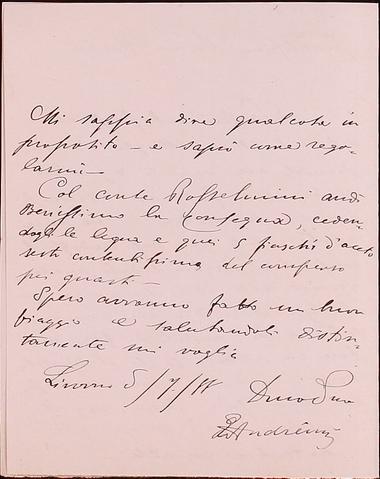 Mi sappia dire qualcosa in
proposito — e saprò come rego-
larmi —
Col conte Rosselmini andò
Benissimo la consegna, ceden-
dogli le legna e quei 5 fiaschi d'aceto
restò contentissimo del compenso
pei guasti —
Spero avranno fatto un buon
viaggio e salutandoli distin-
tamente mi voglia
Livorno 5/7/